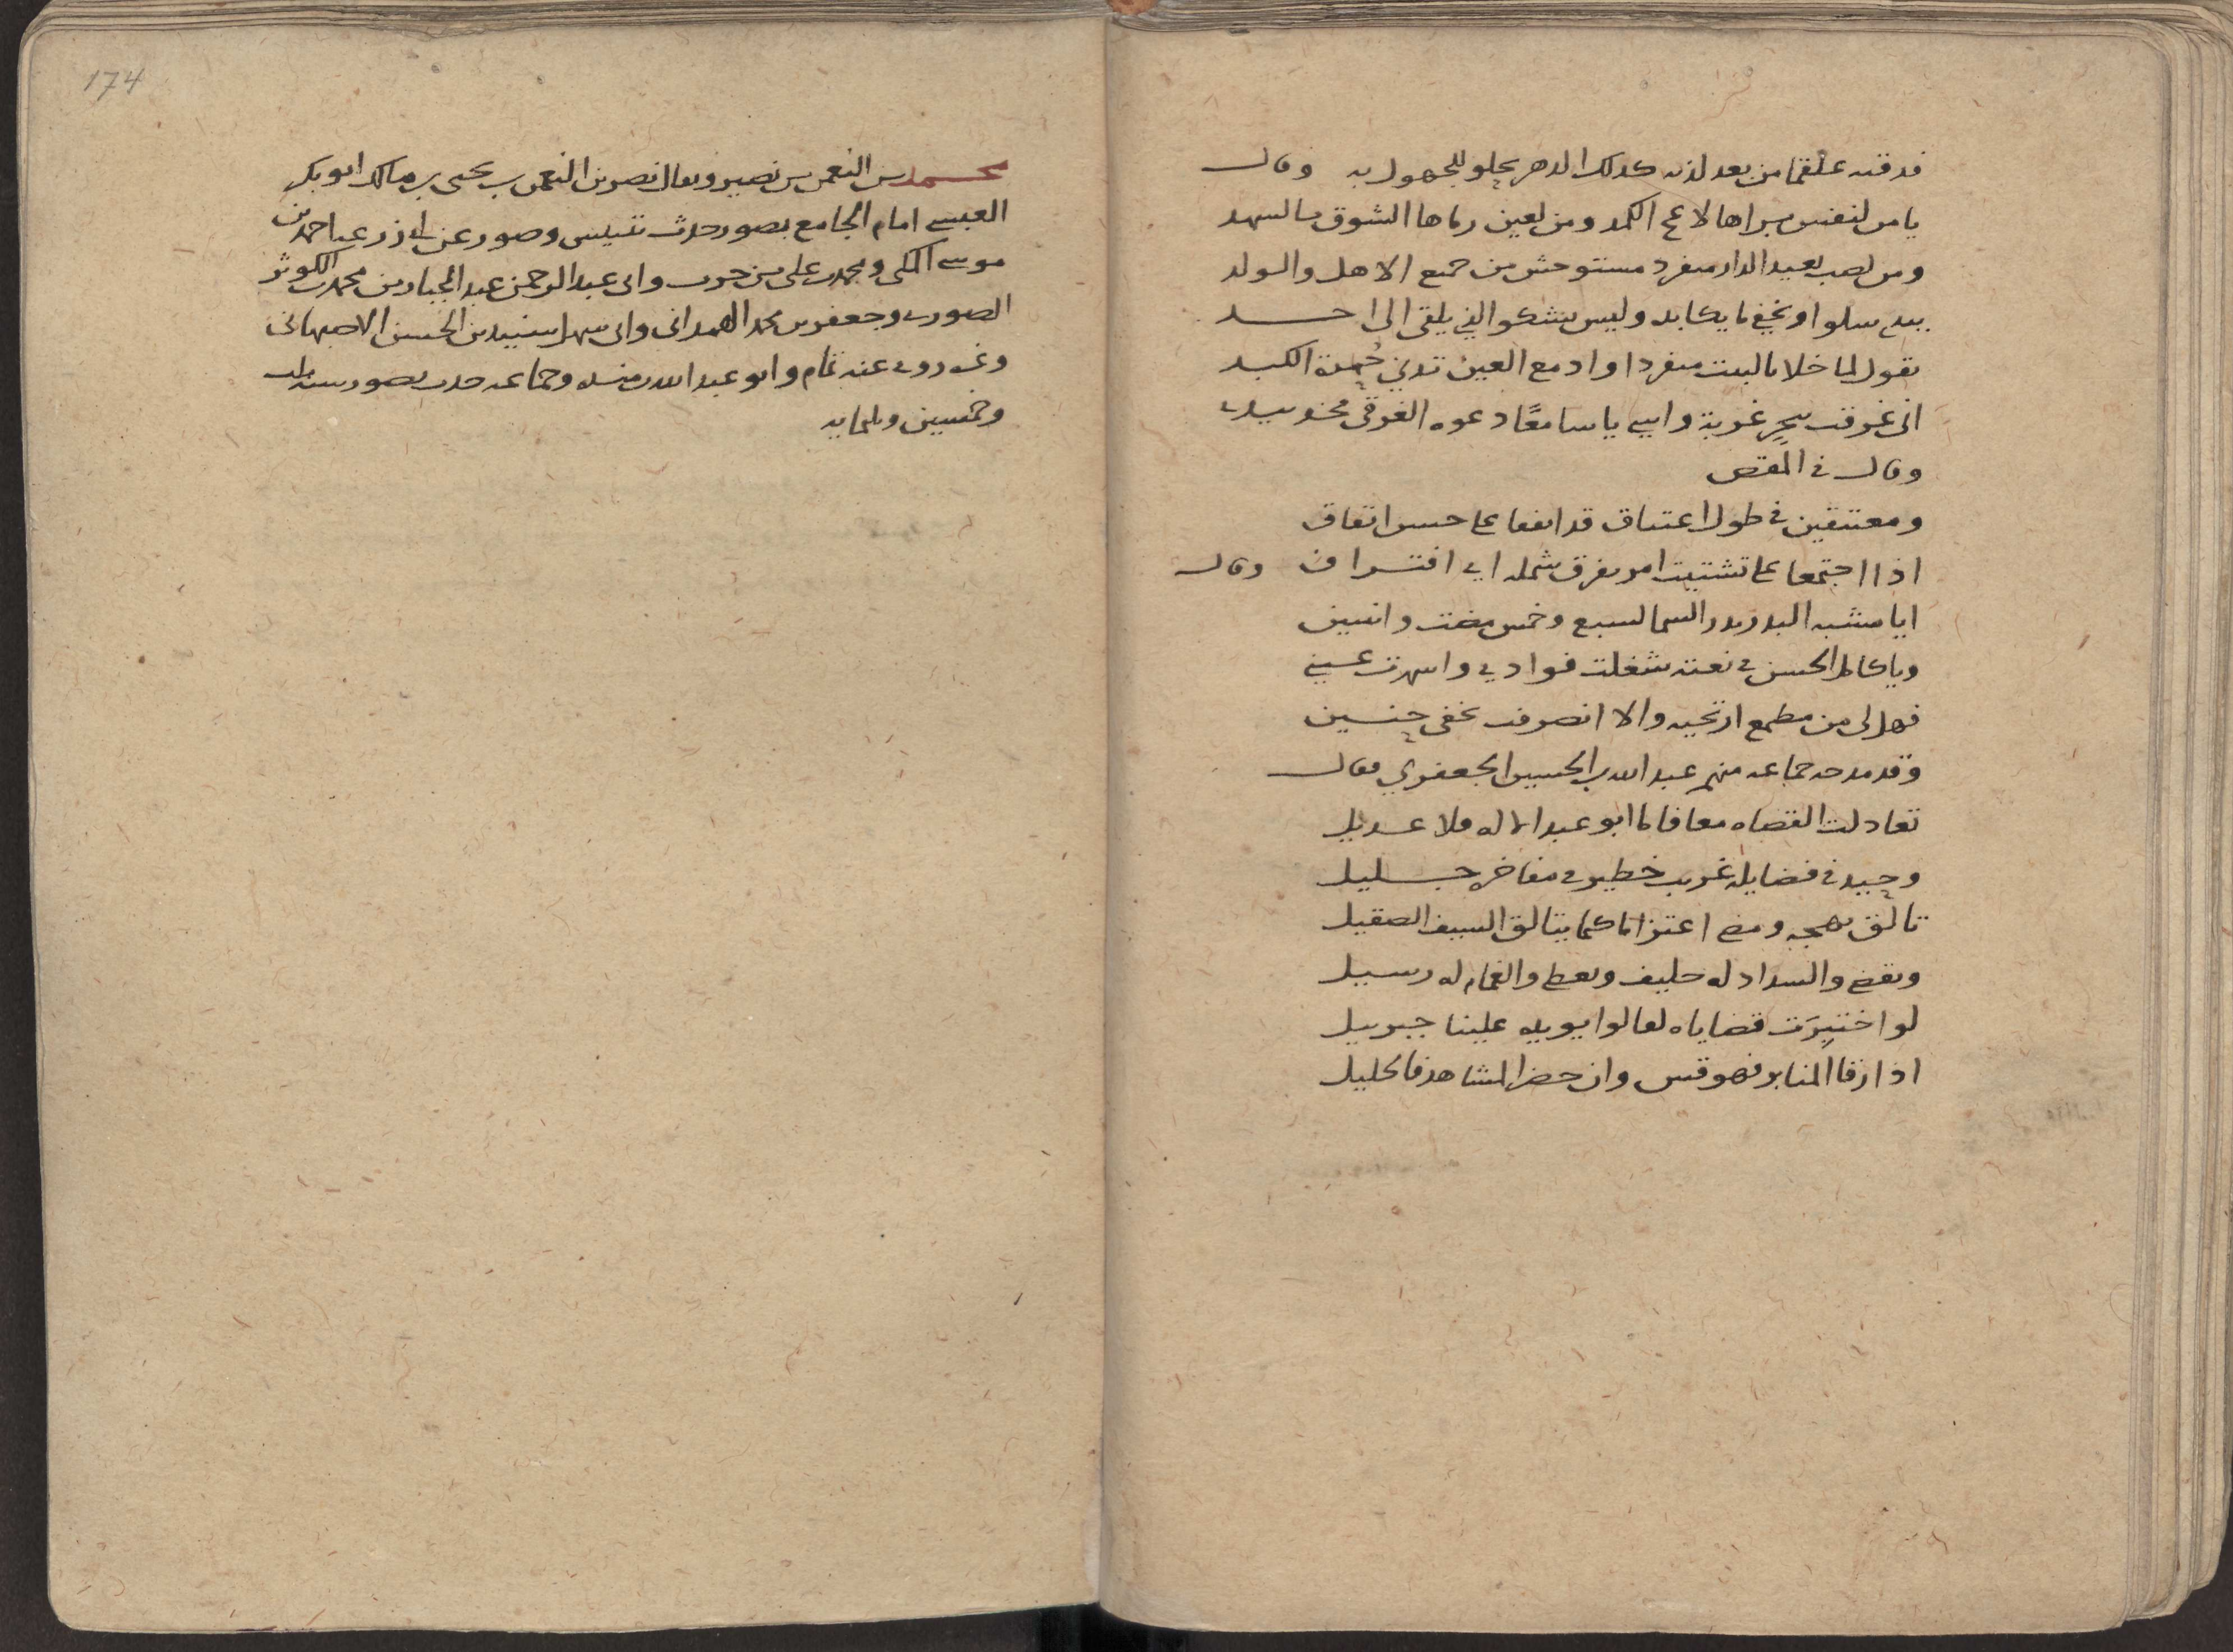 فذقته علقما من بعد لذته كذلك الدهر يحلو للجهول به وقال
يا من لنفس براها لاعج الكمد ومن لعين رماها الشوق بالسهد
ومن لصب بعيد الدار منفرد مستوحش من جميع الاهل والولد
يبدي سلوا ويخفي ما يكابد وليس يشكو الذي يلقى الى احد
يقول لما خلا بالبيت منفردا وادمع العين تذري حمرة الكبد
اني غرقت ببحر غربة واسى يا سامعًا دعوه الغرقى خذ بيدي
وقال في المقص
ومعتنقين في طول اعتناق قد اتفقا على حسن اتفاق
اذا اجتمعا على تشتيت امر تفرق شمله اي افتراق وقال
ايا مشبه البدر بدر السما لسبع وخمس مضت واثنين
ويا كامل الحسن في نعته شغلت فوادي واسهرت عيني
فهل لي من مطمع ارتجيه والا انصرفت بخفي حنين
وقد مدحه جماعه منهم عبد الله بن الحسين الجعفري فقال
تعادلت القضاه معا فاما ابو عبد الاله فلا عديل
وحيد في فضايله غريب خطير في مفاخره جليل
تالق بهجه ومضى اعتزاما كما يتالق السيف الصقيل
ويقضي والسداد له حليف ويعطي والغمام له رسيل
لو اختبرت قضاياه لقالوا يويده علينا جبرييل
اذا رقا المنابر فهو قس وان حضر المشاهد فالخليل
174
محمد بن النعمن بن نصير ويقال نصر بن النعمن بن يحيى بن مالك ابو بكر
العبسي امام الجامع بصور حدث بتنيس وصور عن احمد بن
موسى المكي ومحمد بن علي بن حرب وابي عبد الرحمن عبد الجبار بن محمد بن الكوثر
الصوري وجعفر بن محمد الهمداني وابي سهل سنيد بن الحسن الاصبهاني
وغيره روى عنه تمام وابو عبد الله بن منده وجماعه حدث بصور سنه ثلث
وخمسين وثلثمايه